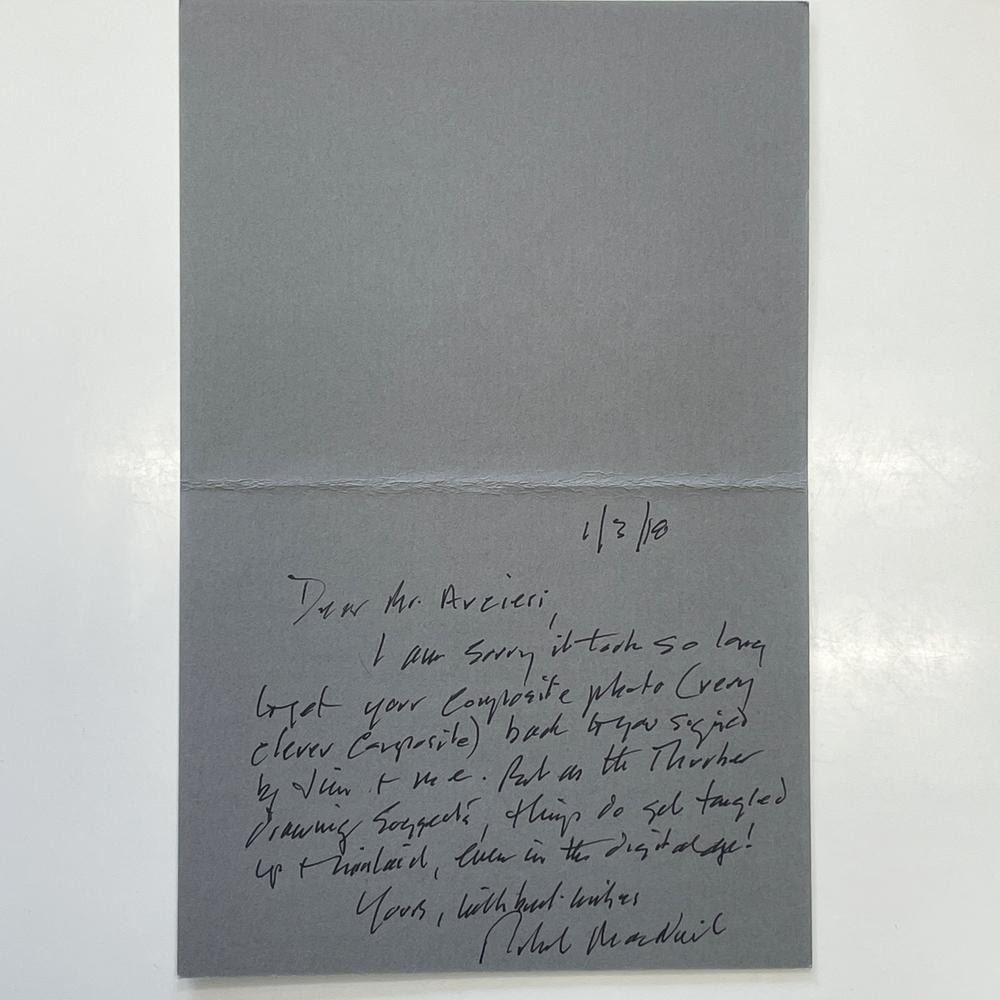 1/3/18
Dear Mr. Arcieri,
I am sorry it took so long
to get your composite photo (very
clever composite) back to you signed
by Jim + me. But as the Thurber
drawing suggests, things do get tangled
up + mislaid, even in the digital age!
Yours, with best wishes
Robert MacNeil